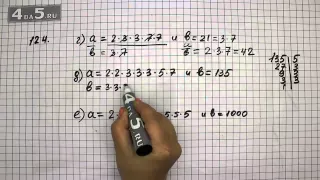 4DA5.RU
124.
г) a = 2·3·3·7·7 и b = 21 = 3·7
b = 3·7
a/b = 2·3·7 = 42
д) a = 2·2·3·3·3·5·7 и b = 135
b = 3·3·
135 | 5
27 | 3
9 | 3
3 | 3
1
е) a = 2· ·5·5·5 и b = 1000